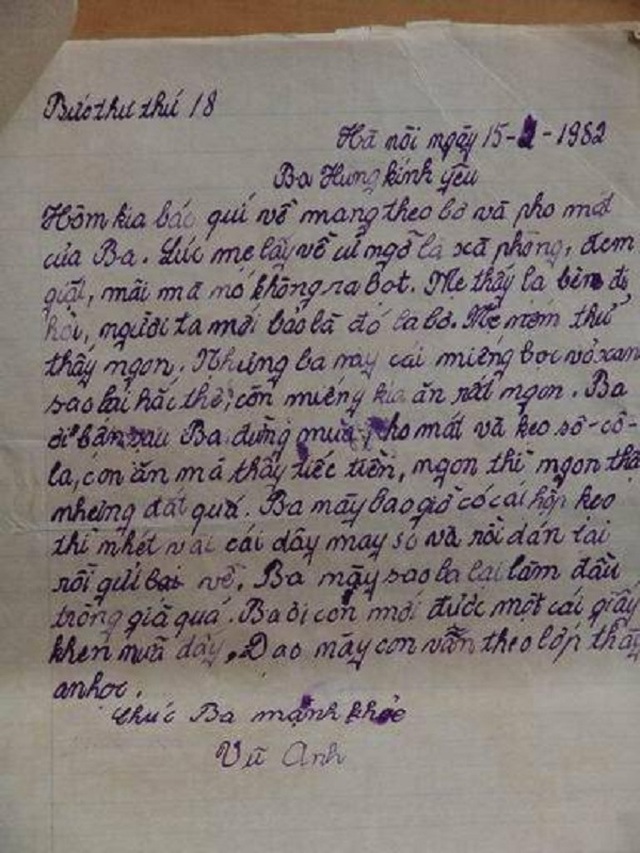 Bức thư thứ 18
Hà nội ngày 15-2-1982
Ba Hưng kính yêu
Hôm kia bác quí về mang theo bơ và pho mát
của Ba. Lúc mẹ lấy về cứ ngỡ là xà phòng, đem
giặt, mãi mà nó không ra bọt. Mẹ thấy lạ bèn đi
hỏi, người ta mới bảo là đó là bơ. Mẹ nếm thử
thấy ngon. Nhưng ba này cái miếng bọc vỏ xan
sao lại hắc thế, còn miếng kia ăn rất ngon. Ba
ơi bận sau Ba đừng mua pho mát và kẹo sô-cô-
la, con ăn mà thấy tiếc tiền, ngon thì ngon thậ
nhưng đắt quá. Ba mấy bao giờ có cái hộp kẹo
thì nhét vài cái dây may so và rồi dán lại
rồi gửi về. Ba mấy sao ba lại làm đầu
trông già quá. Ba ơi con mới được một cái giấy
khen nữa đấy. Dạo này con vẫn theo lớp thầy
anhọc.
Chúc Ba mạnh khỏe
Vũ Anh